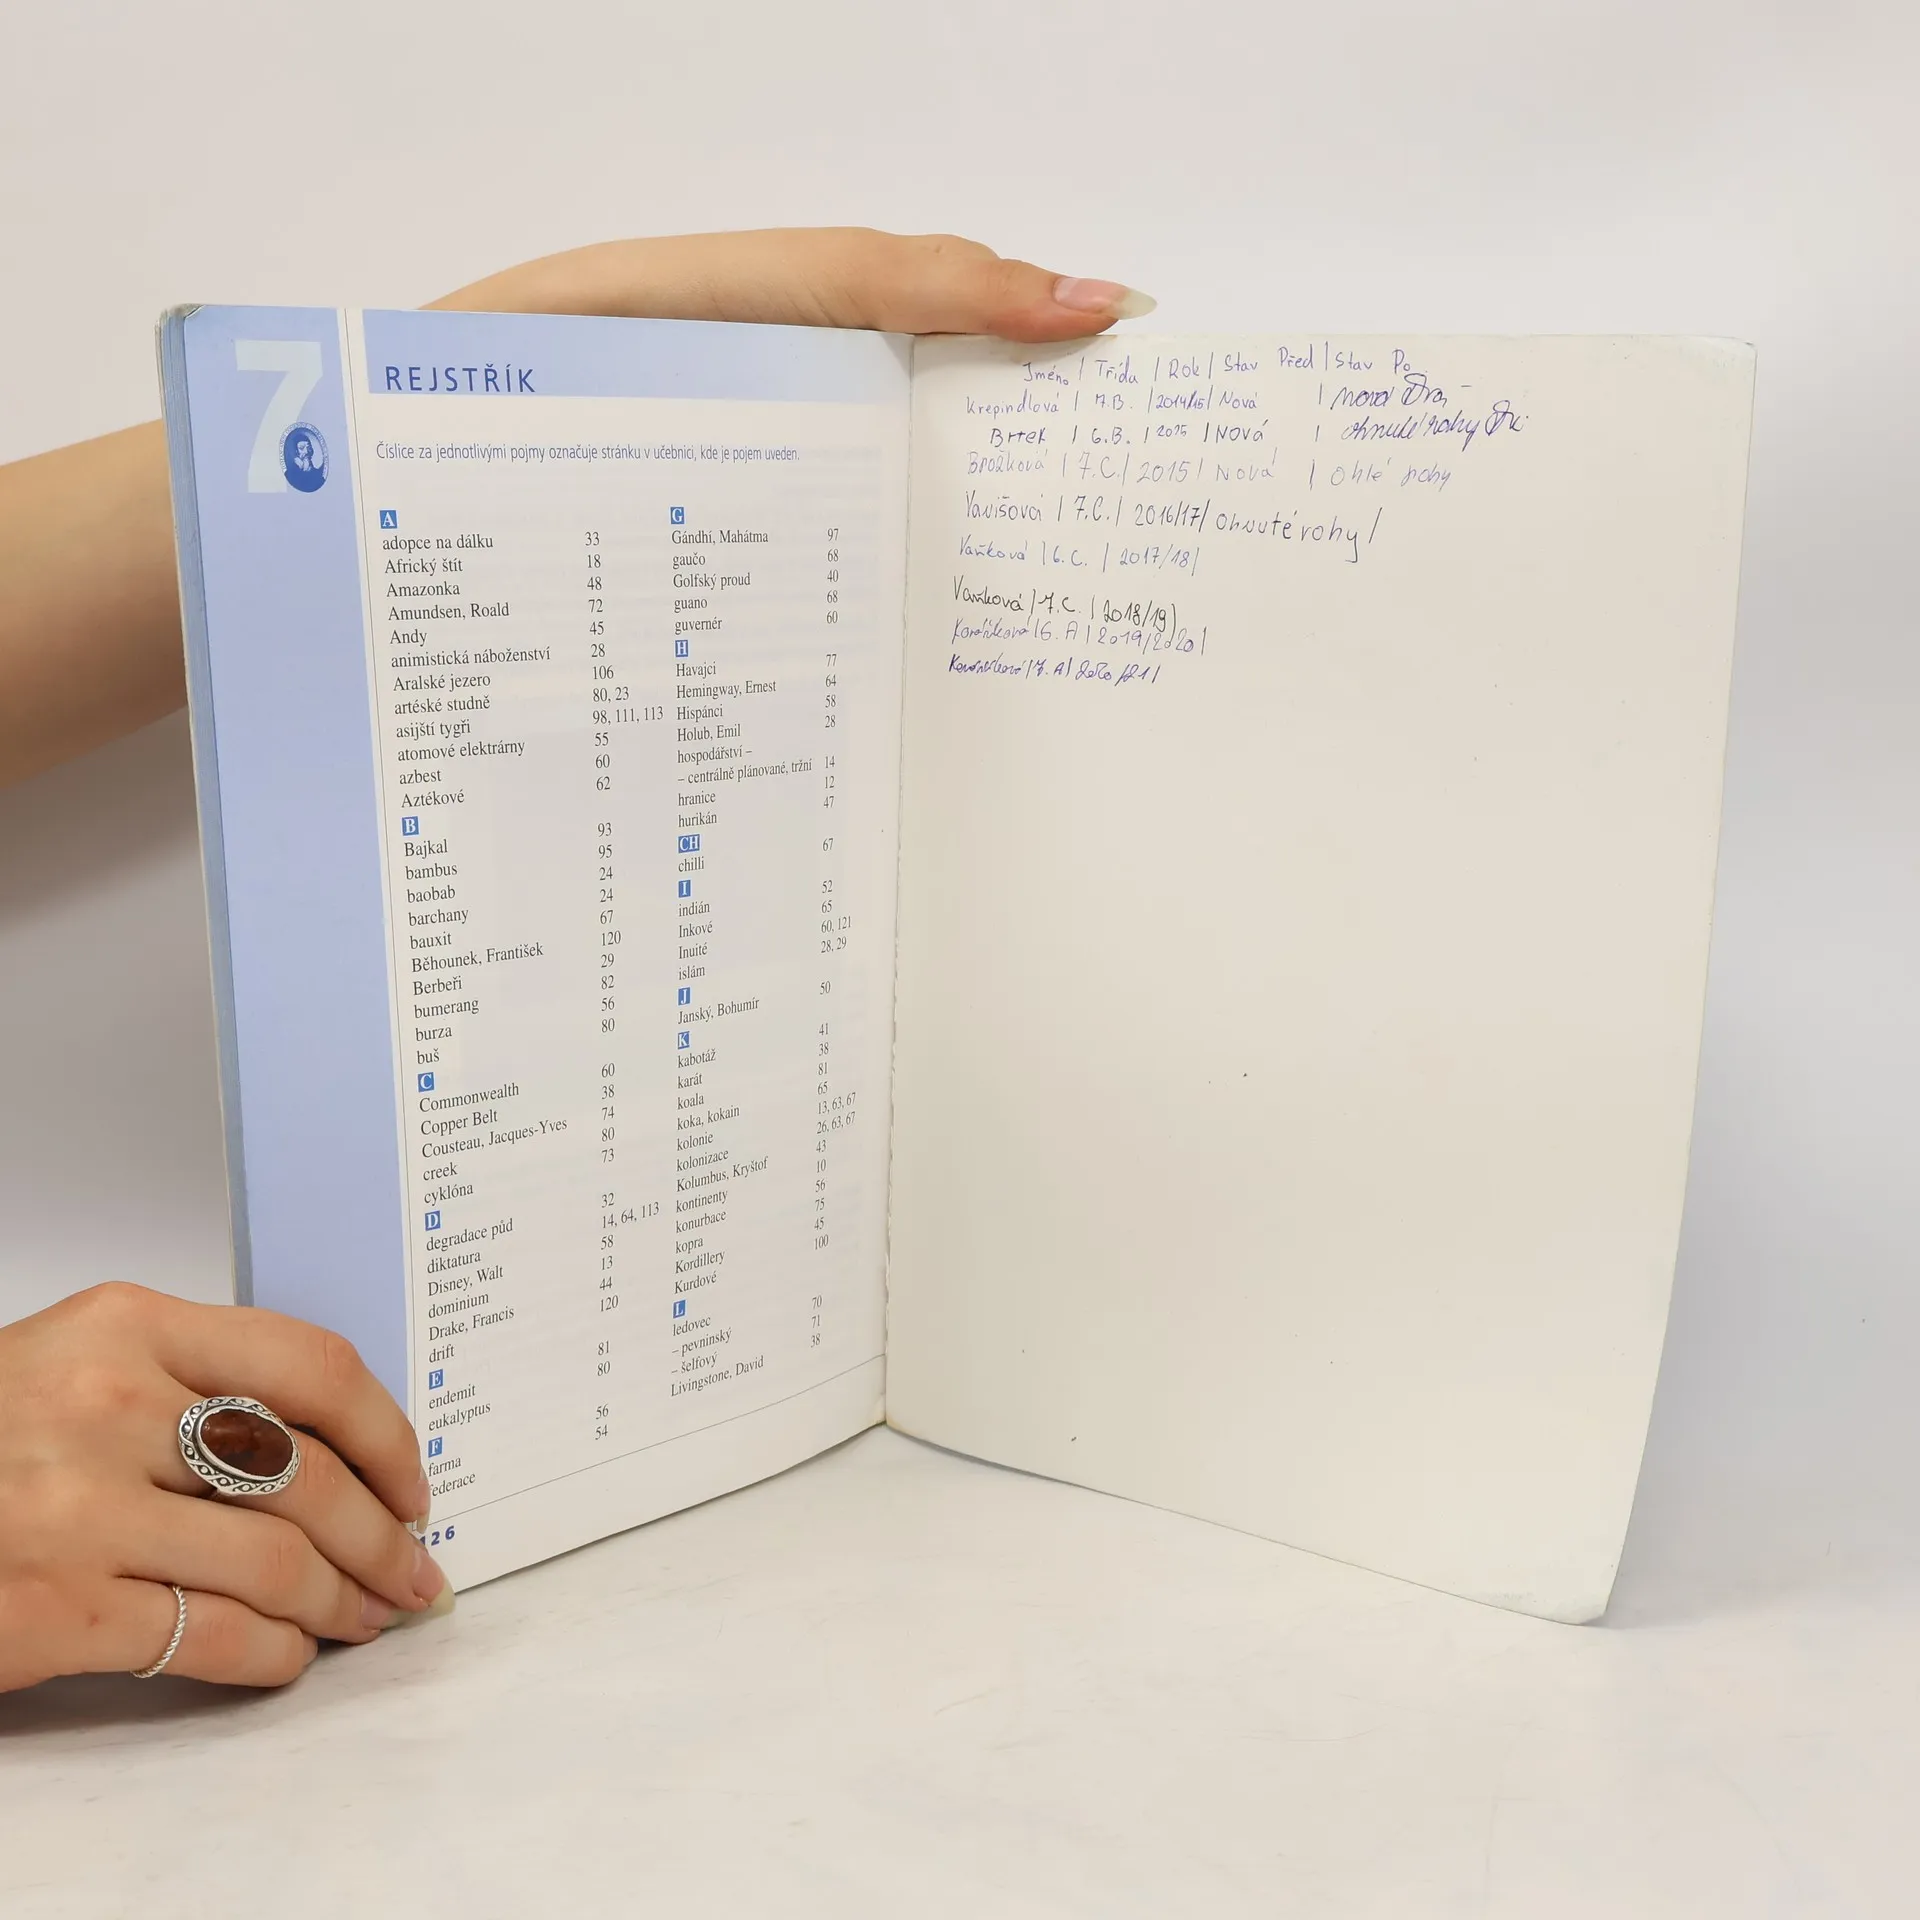 7
REJSTŘÍK
Číslice za jednotlivými pojmy označuje stránku v učebnici, kde je pojem uveden.
A
adopce na dálku 33
Africký štít 18
Amazonka 48
Amundsen, Roald 72
Andy 45
animistická náboženství 28
Aralské jezero 106
artéské studně 80, 23
asijští tygři 98, 111, 113
atomové elektrárny 55
azbest 60
Aztékové 62
B
Bajkal 93
bambus 95
baobab 24
barchany 24
bauxit 67
Běhounek, František 120
Berbeři 29
bumerang 82
burza 56
buš 80
C
Commonwealth 60
Copper Belt 38
Cousteau, Jacques-Yves 74
creek 80
cyklóna 73
D
degradace půd 32
diktatura 14, 64, 113
Disney, Walt 58
dominium 13
Drake, Francis 44
drift 120
E
endemit 81
eukalyptus 80
F
farma 56
federace 54
G
Gándhí, Mahátma 97
gaučo 68
Golfský proud 40
guano 68
guvernér 60
H
Havajci 77
Hemingway, Ernest 64
Hispánci 58
Holub, Emil 28
hospodářství –
– centrálně plánované, tržní 14
hranice 12
hurikán 47
CH
chilli 67
I
indián 52
Inkové 65
Inuité 60, 121
islám 28, 29
J
Janský, Bohumír 50
K
kabotáž 41
karát 38
koala 81
koka, kokain 65
kolonie 13, 63, 67
kolonizace 26, 63, 67
Kolumbus, Kryštof 43
kontinenty 10
konurbace 56
kopra 75
Kordillery 45
Kurdové 100
L
ledovec
– pevninský 70
– šelfový 71
Livingstone, David 38
126
Jméno | Třída | Rok | Stav Před | Stav Po
Krepindlová | 7.B. | 2014/15 | Nová | nová
Brtek | 6.B. | 2015 | Nová | ohnuté rohy
Brožková | 7.C. | 2015 | Nová | Ohlé rohy
Vavišová | 7.C. | 2016/17 | ohnuté rohy |
Vaňková | 6.C. | 2017/18 |
Vaňková | 7.C. | 2018/19 |
6.A | 2019/2020 |
7.A | 2020/21 |